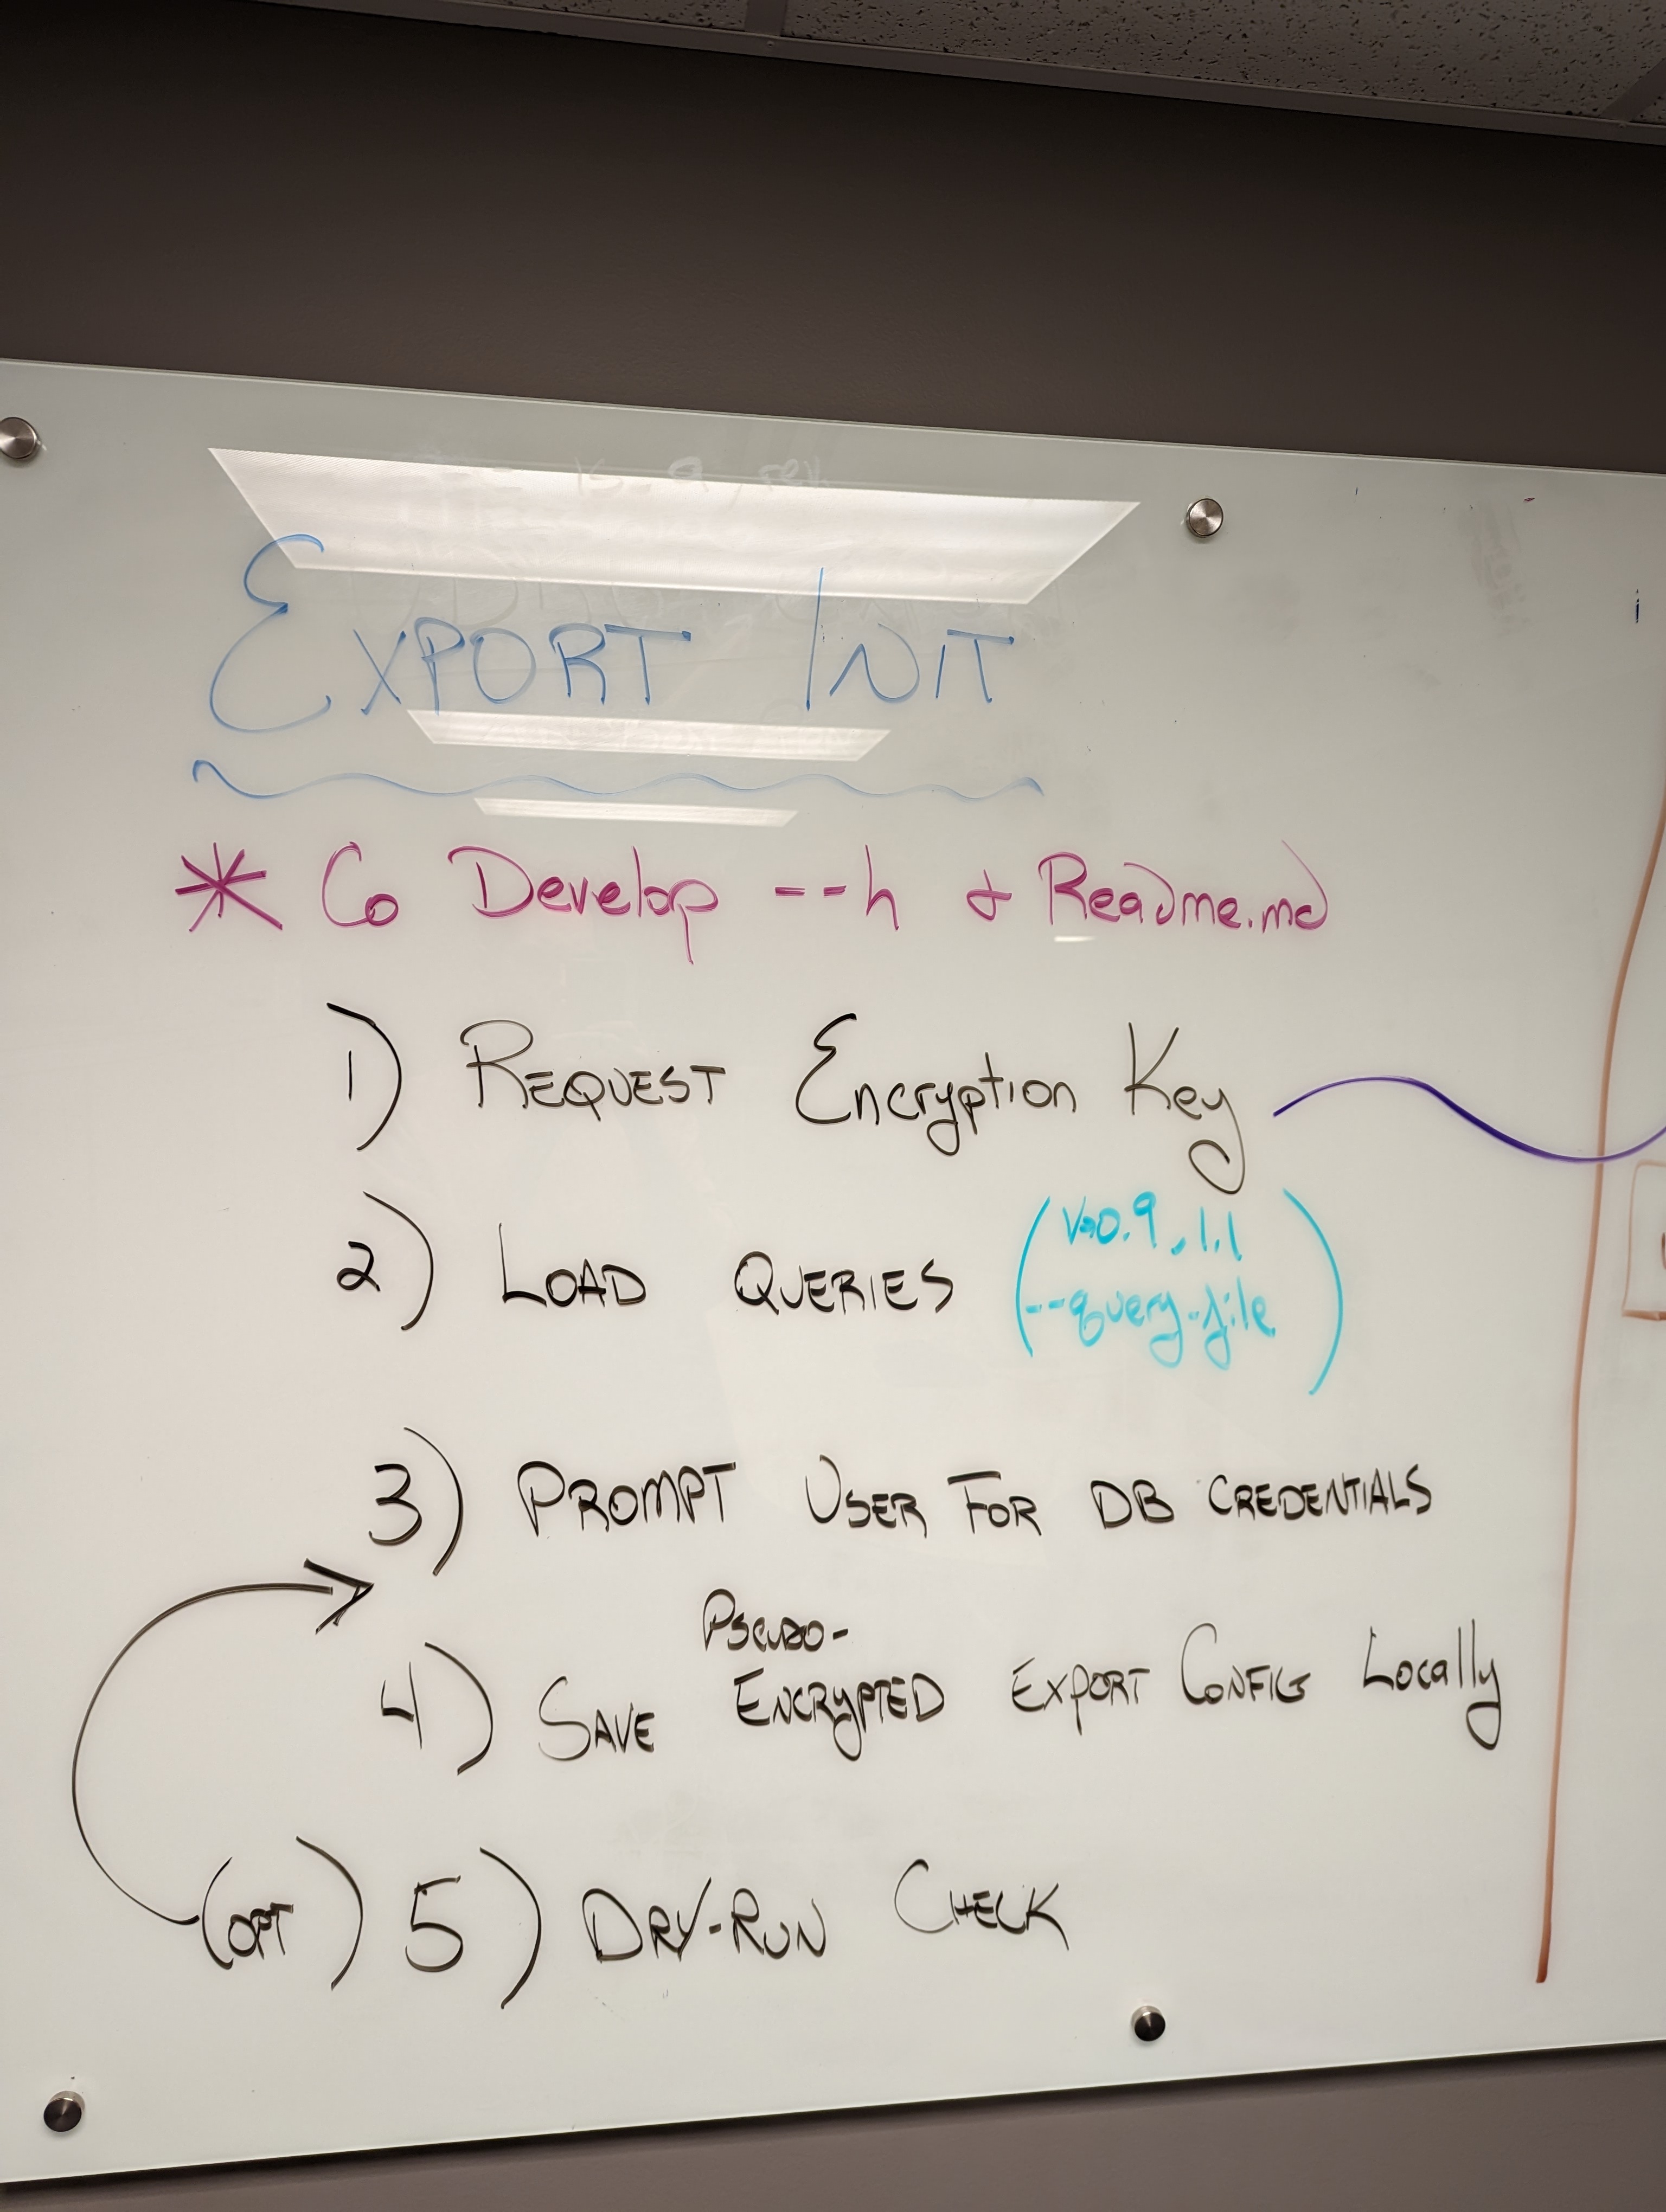 EXPORT INIT
* Co Develop --h & Readme.md
1) REQUEST Encryption Key
2) LOAD QUERIES (v0.9, 1.1
--query-file)
3) PROMPT USER FOR DB CREDENTIALS
PSEUDO-
4) SAVE ENCRYPTED EXPORT CONFIG Locally
(OPT) 5) DRY-RUN CHECK